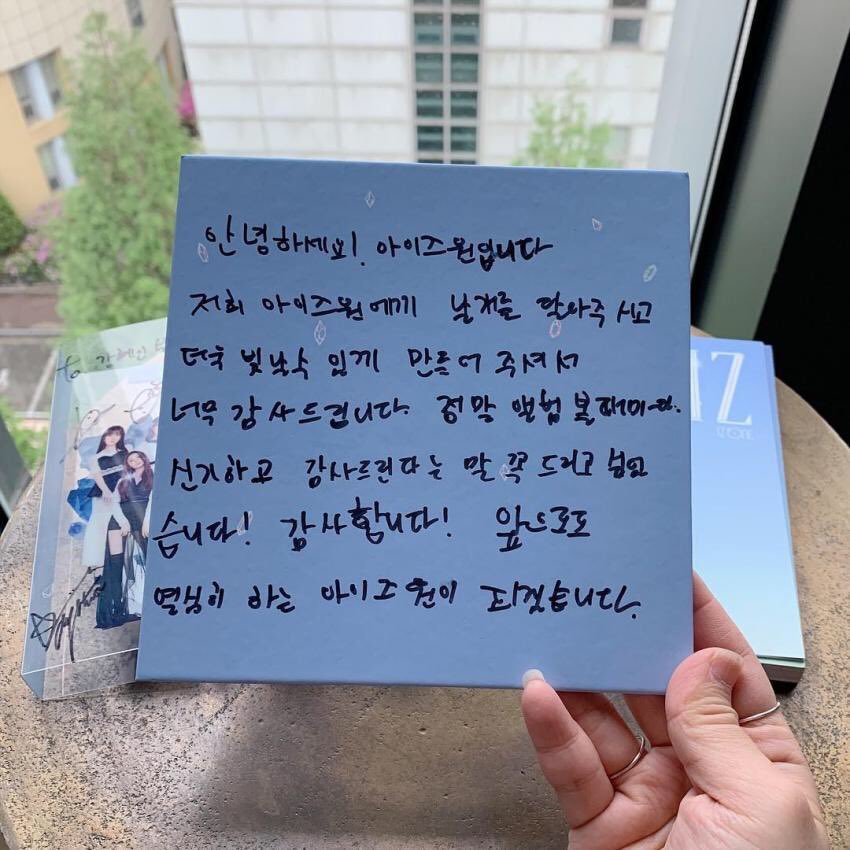 안녕하세요! 아이즈원입니다
저희 아이즈원에게 날개를 달아주시고
더욱 빛날수 있게 만들어 주셔서
너무 감사드립니다. 정말 앨범 볼때마다.
신기하고 감사드린다는 말 꼭 드리고 싶었
습니다! 감사합니다! 앞으로도
열심히 하는 아이즈원이 되겠습니다.
to 김혜인
IZ
IZ*ONE